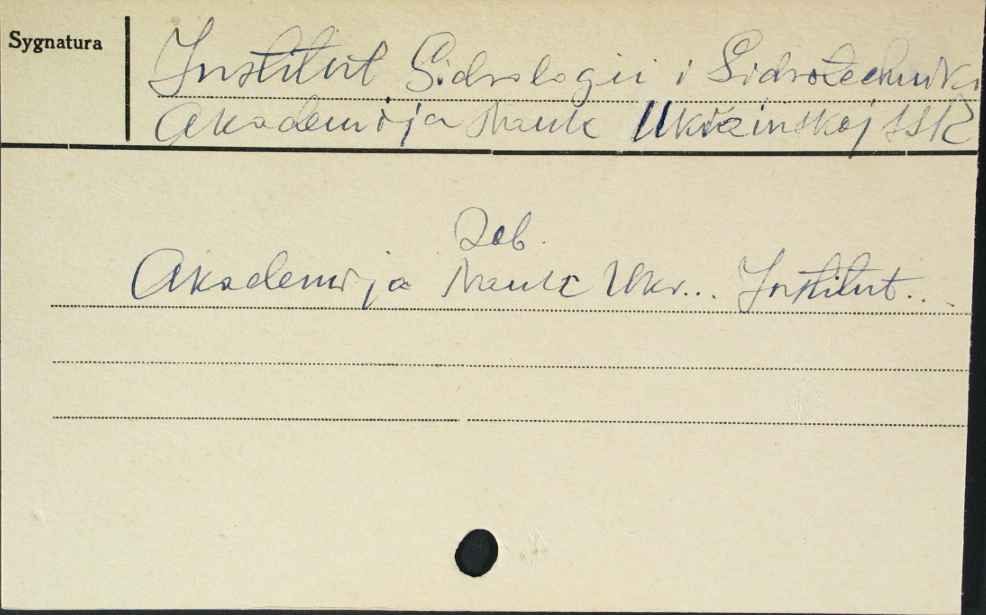 Sygnatura
Institut Gidrologii i Gidrotechniki
Akademija Nauk Ukrainskoj SSR
Zob.
Akademija Nauk Ukr... Institut...